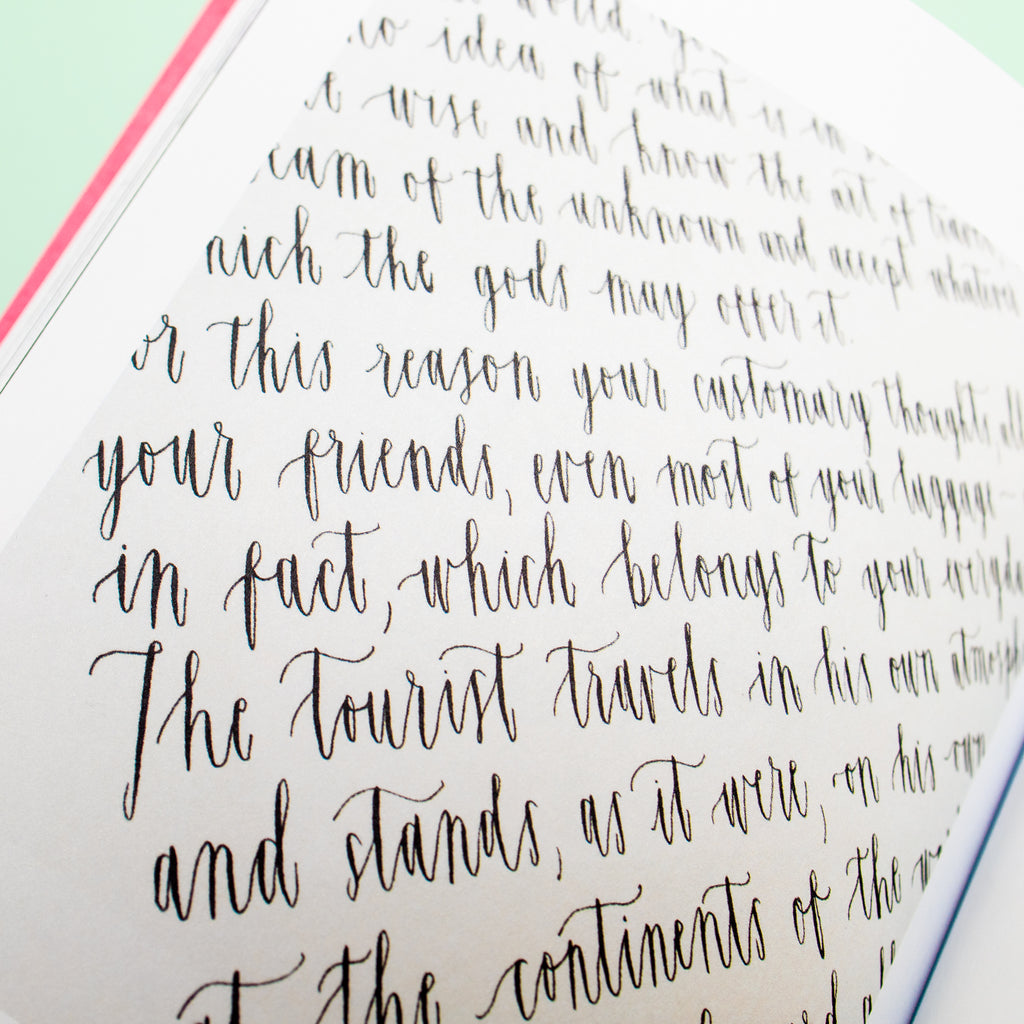 world. you
no idea of what is in
wise and know the art of travel
of the unknown and accept whatever
the gods may offer it.
or this reason your customary thoughts, all
your friends, even most of your luggage -
in fact, which belongs to your everyda
The tourist travels in his own atmosph
and stands, as it were, on his own
at the continents of the